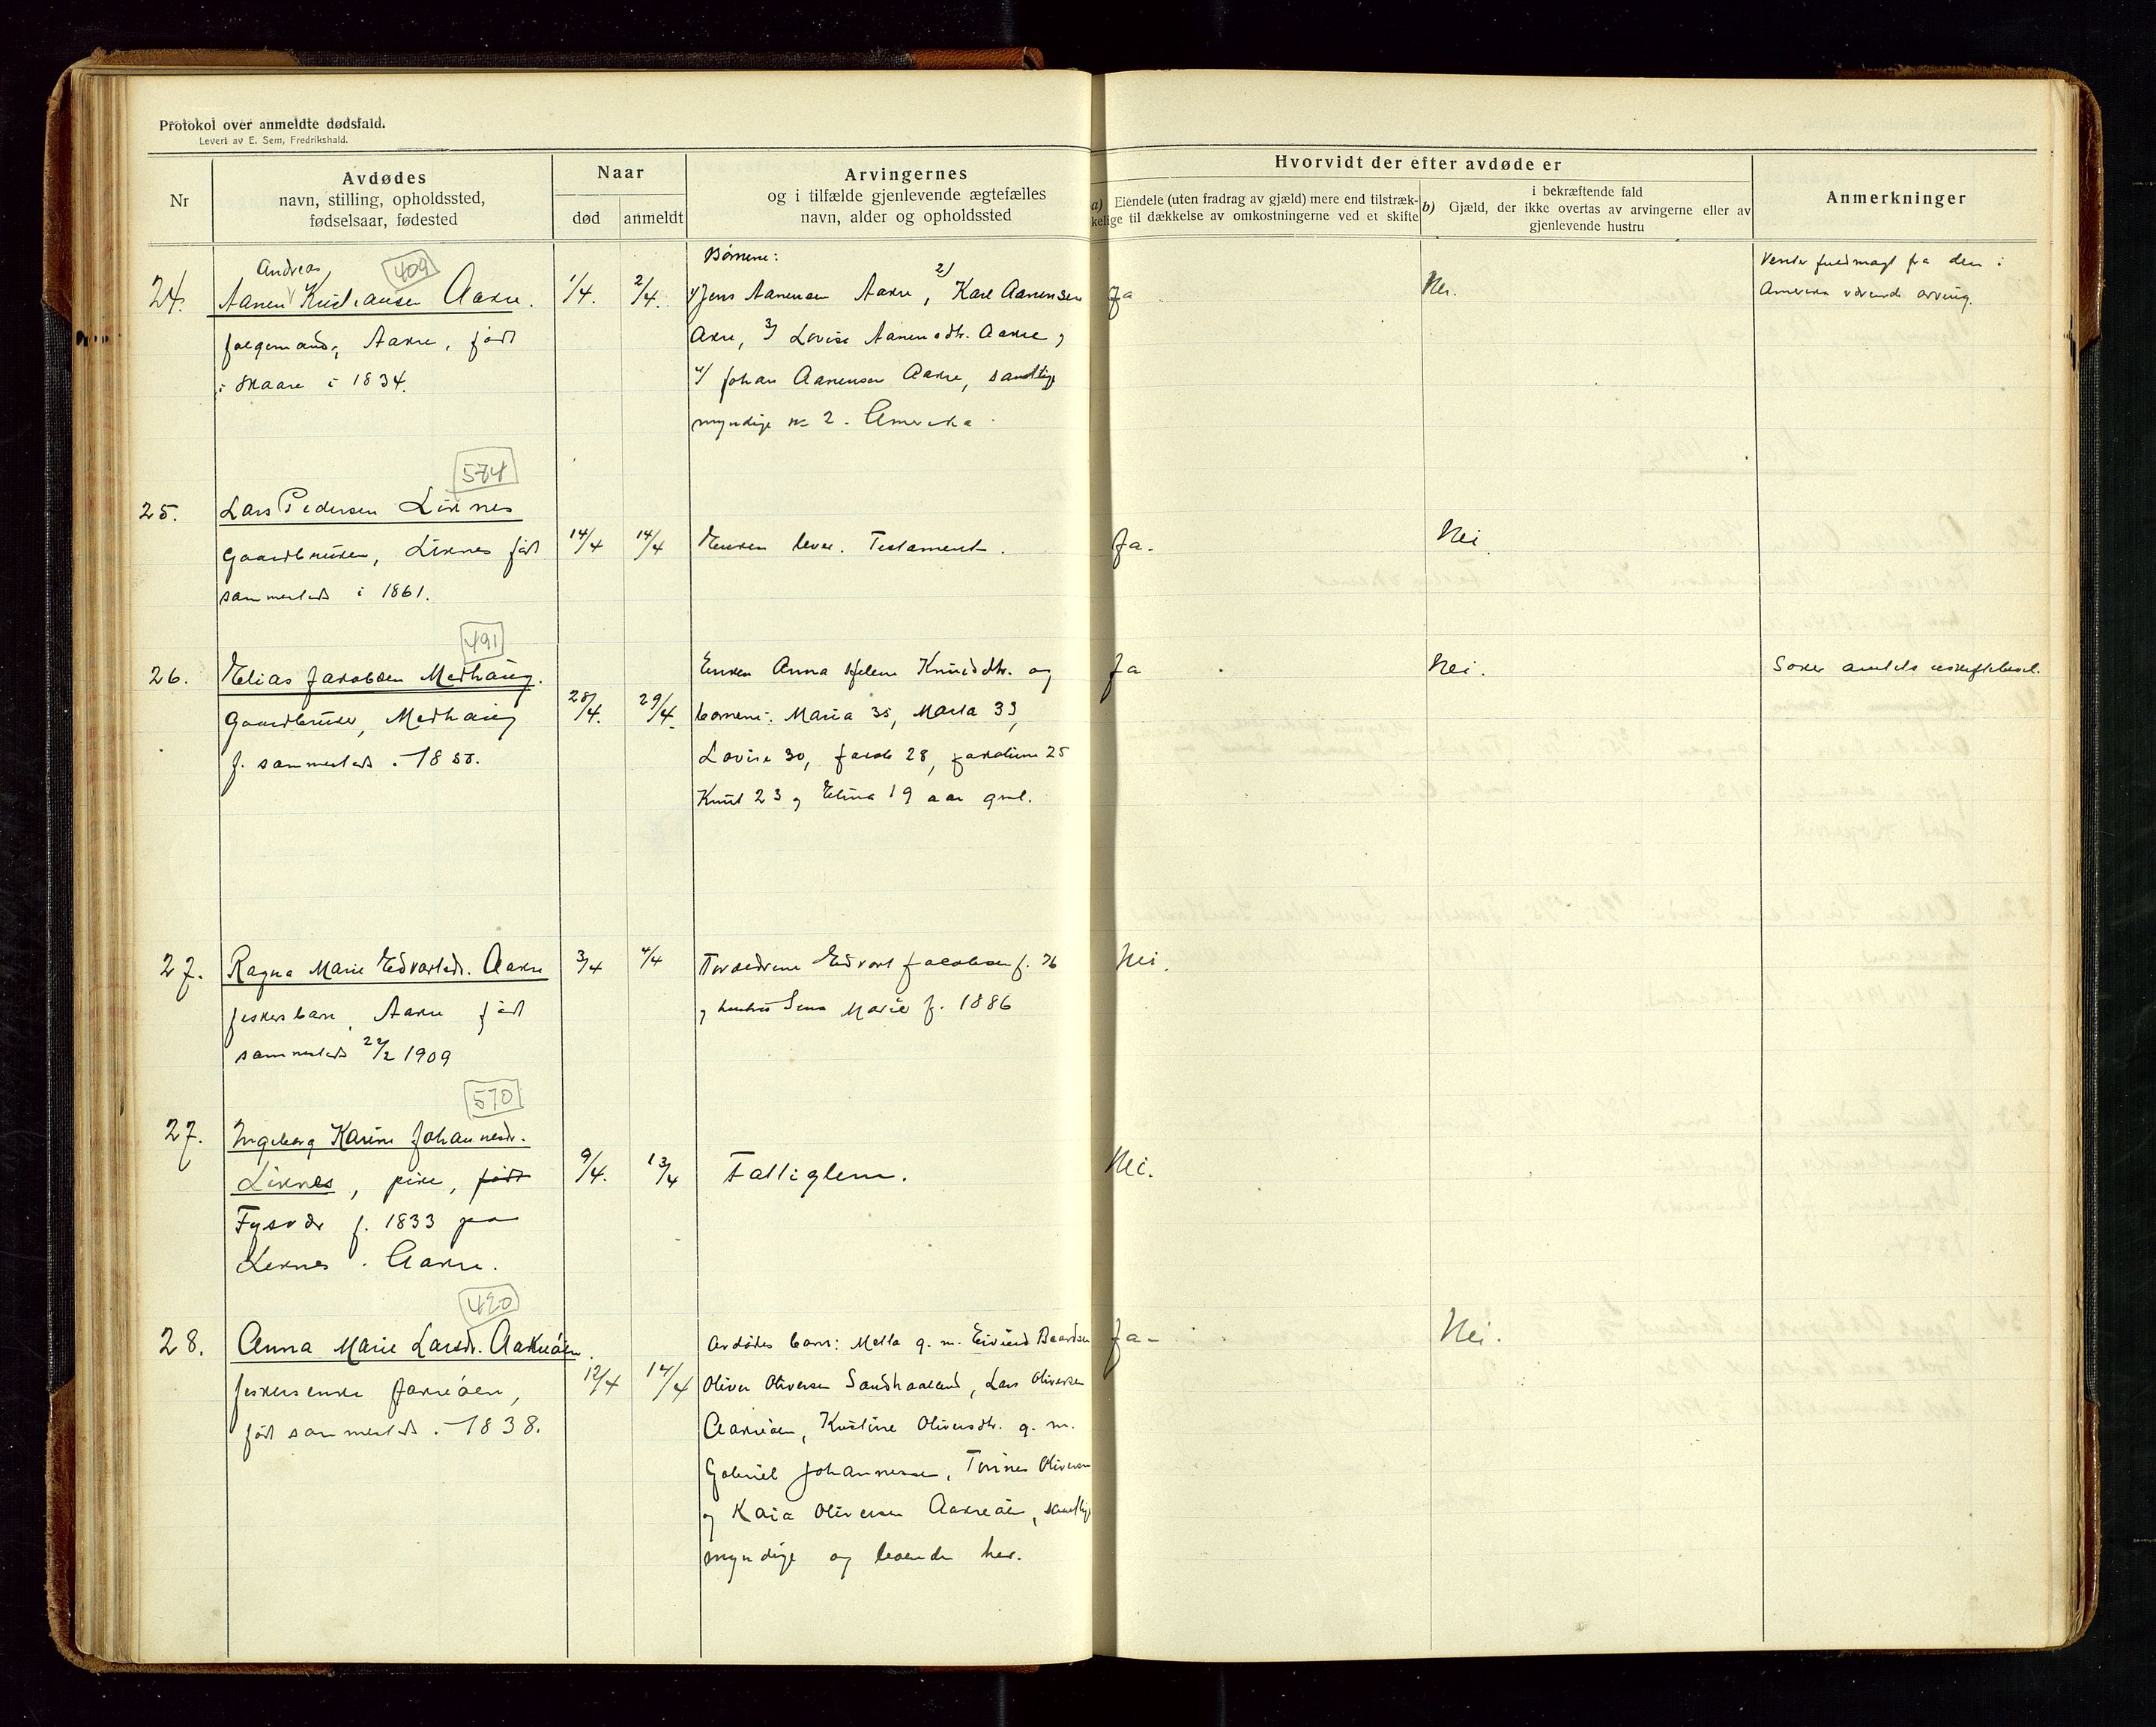 Protokol over anmeldte dødsfald.
Levert av E. Sem, Fredrikshald.
Nr
Avdødes
navn, stilling, opholdssted,
fødselsaar, fødested
Naar
død
anmeldt
Arvingernes
og i tilfælde gjenlevende ægtefælles
navn, alder og opholdssted
Hvorvidt der efter avdøde er
a) Eiendele (uten fradrag av gjæld) mere end tilstræk-
kelige til dækkelse av omkostningerne ved et skifte
i bekræftende fald
b) Gjæld, der ikke overtas av arvingerne eller av
gjenlevende hustru
Anmerkninger
24.
Andreas
409
Aanen Kristiansen Aakre.
i Skaare i 1834.
1/4.
2/4.
Børnene:
1/ Jens Aanensen Aakre, 2/ Karl Aanensen
Akre, 3/ Lovise Aanensdtr. Aakre,
4/ Johan Aanensen Aakre, samtlige
myndige no 2 i Amerika
Ja
Nei.
Venter fuldmagt fra den i
Amerika værende arving.
574
25.
Lars Pedersen Liknes
Gaardbruker, Liknes født
sammesteds i 1861.
14/4
14/4
Enken lever. Testament.
Ja.
Nei
491
26.
Elias Jakobsen Medhaug.
Gaardbruker, Medhaug
f. sammesteds i 1855.
28/4.
29/4.
Enken Anna Helene Knudsdtr. og
børnene: Maria 35, Marta 33,
Lovise 30, Jacob 28, Jakobine 25
Knut 23 og Elina 19 aar gml.
Ja
Nei.
27.
Ragna Marie Edvartsdr. Aakre
fiskerbarn, Aakre født
sammesteds 22/2 1909
3/4
4/4
Forældrene Edvart Jacobsen f. 76
og hustru Sina Marie f. 1886
Nei.
570
27.
Ingeborg Karine Johannesdr.
Liknes, pike, født
Fysvær f. 1833 paa
Liknes i Aakre.
9/4.
13/4
Fattiglem.
Nei.
420
28.
Anna Marie Larsdr. Aakreøen.
fiskerenke Aakreøen,
født sammesteds i 1838.
12/4
14/4
Avdødes barn: Malla g. m. Eivind Baardsen
Oliver Oliversen Sandhaaland, Lars Oliversen
Aakreøen, Kristine Oliversdtr. g. m.
Gabriel Johannessen, Tønnes Oliversen
og Kaia Oliversen Aakreøen, samtlige
myndige og boende her.
Ja -
Nei.